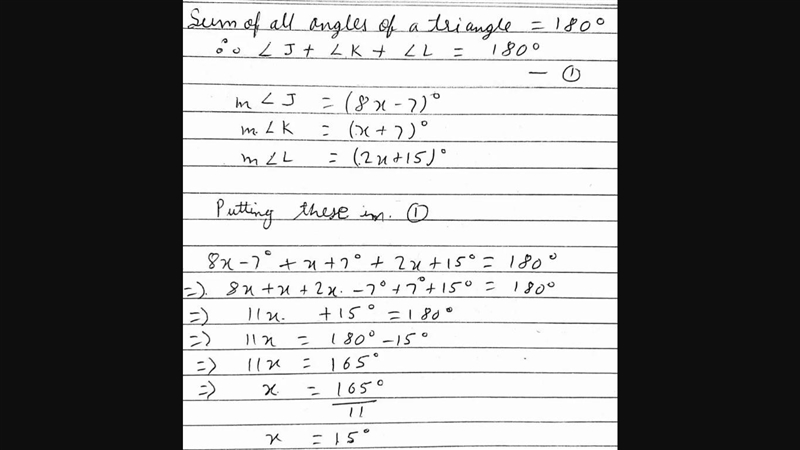 Sum of all angles of a triangle = 180°
∴ ∠J + ∠K + ∠L = 180°
— ①
m∠J = (8x-7)°
m∠K = (x+7)°
m∠L = (2x+15)°
Putting these in. ①
8x-7° + x+7° + 2x+15° = 180°
=) 8x+x+2x -7°+7°+15° = 180°
=) 11x +15° = 180°
=) 11x = 180°-15°
=) 11x = 165°
=) x = 165°/11
x = 15°